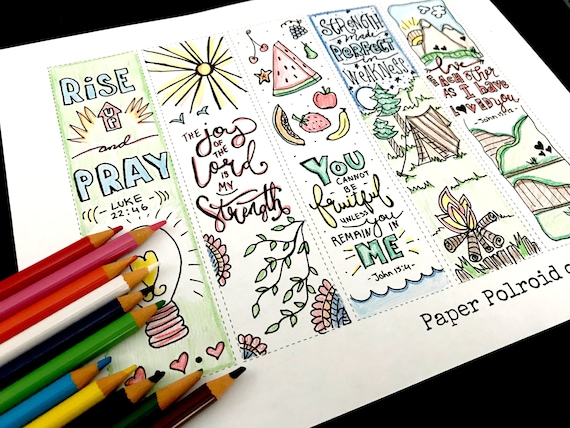 RISE
UP
and
PRAY
LUKE
22:46
THE joy
OF THE
Lord
IS MY
Strength
YOU
CANNOT BE
fruitful
UNLESS
you
REMAIN in
ME
John 15:4
STRENGTH
made
PERFECT
in
WEAKNESS
love
EACH other
as I have
loved you
Paper Polroid